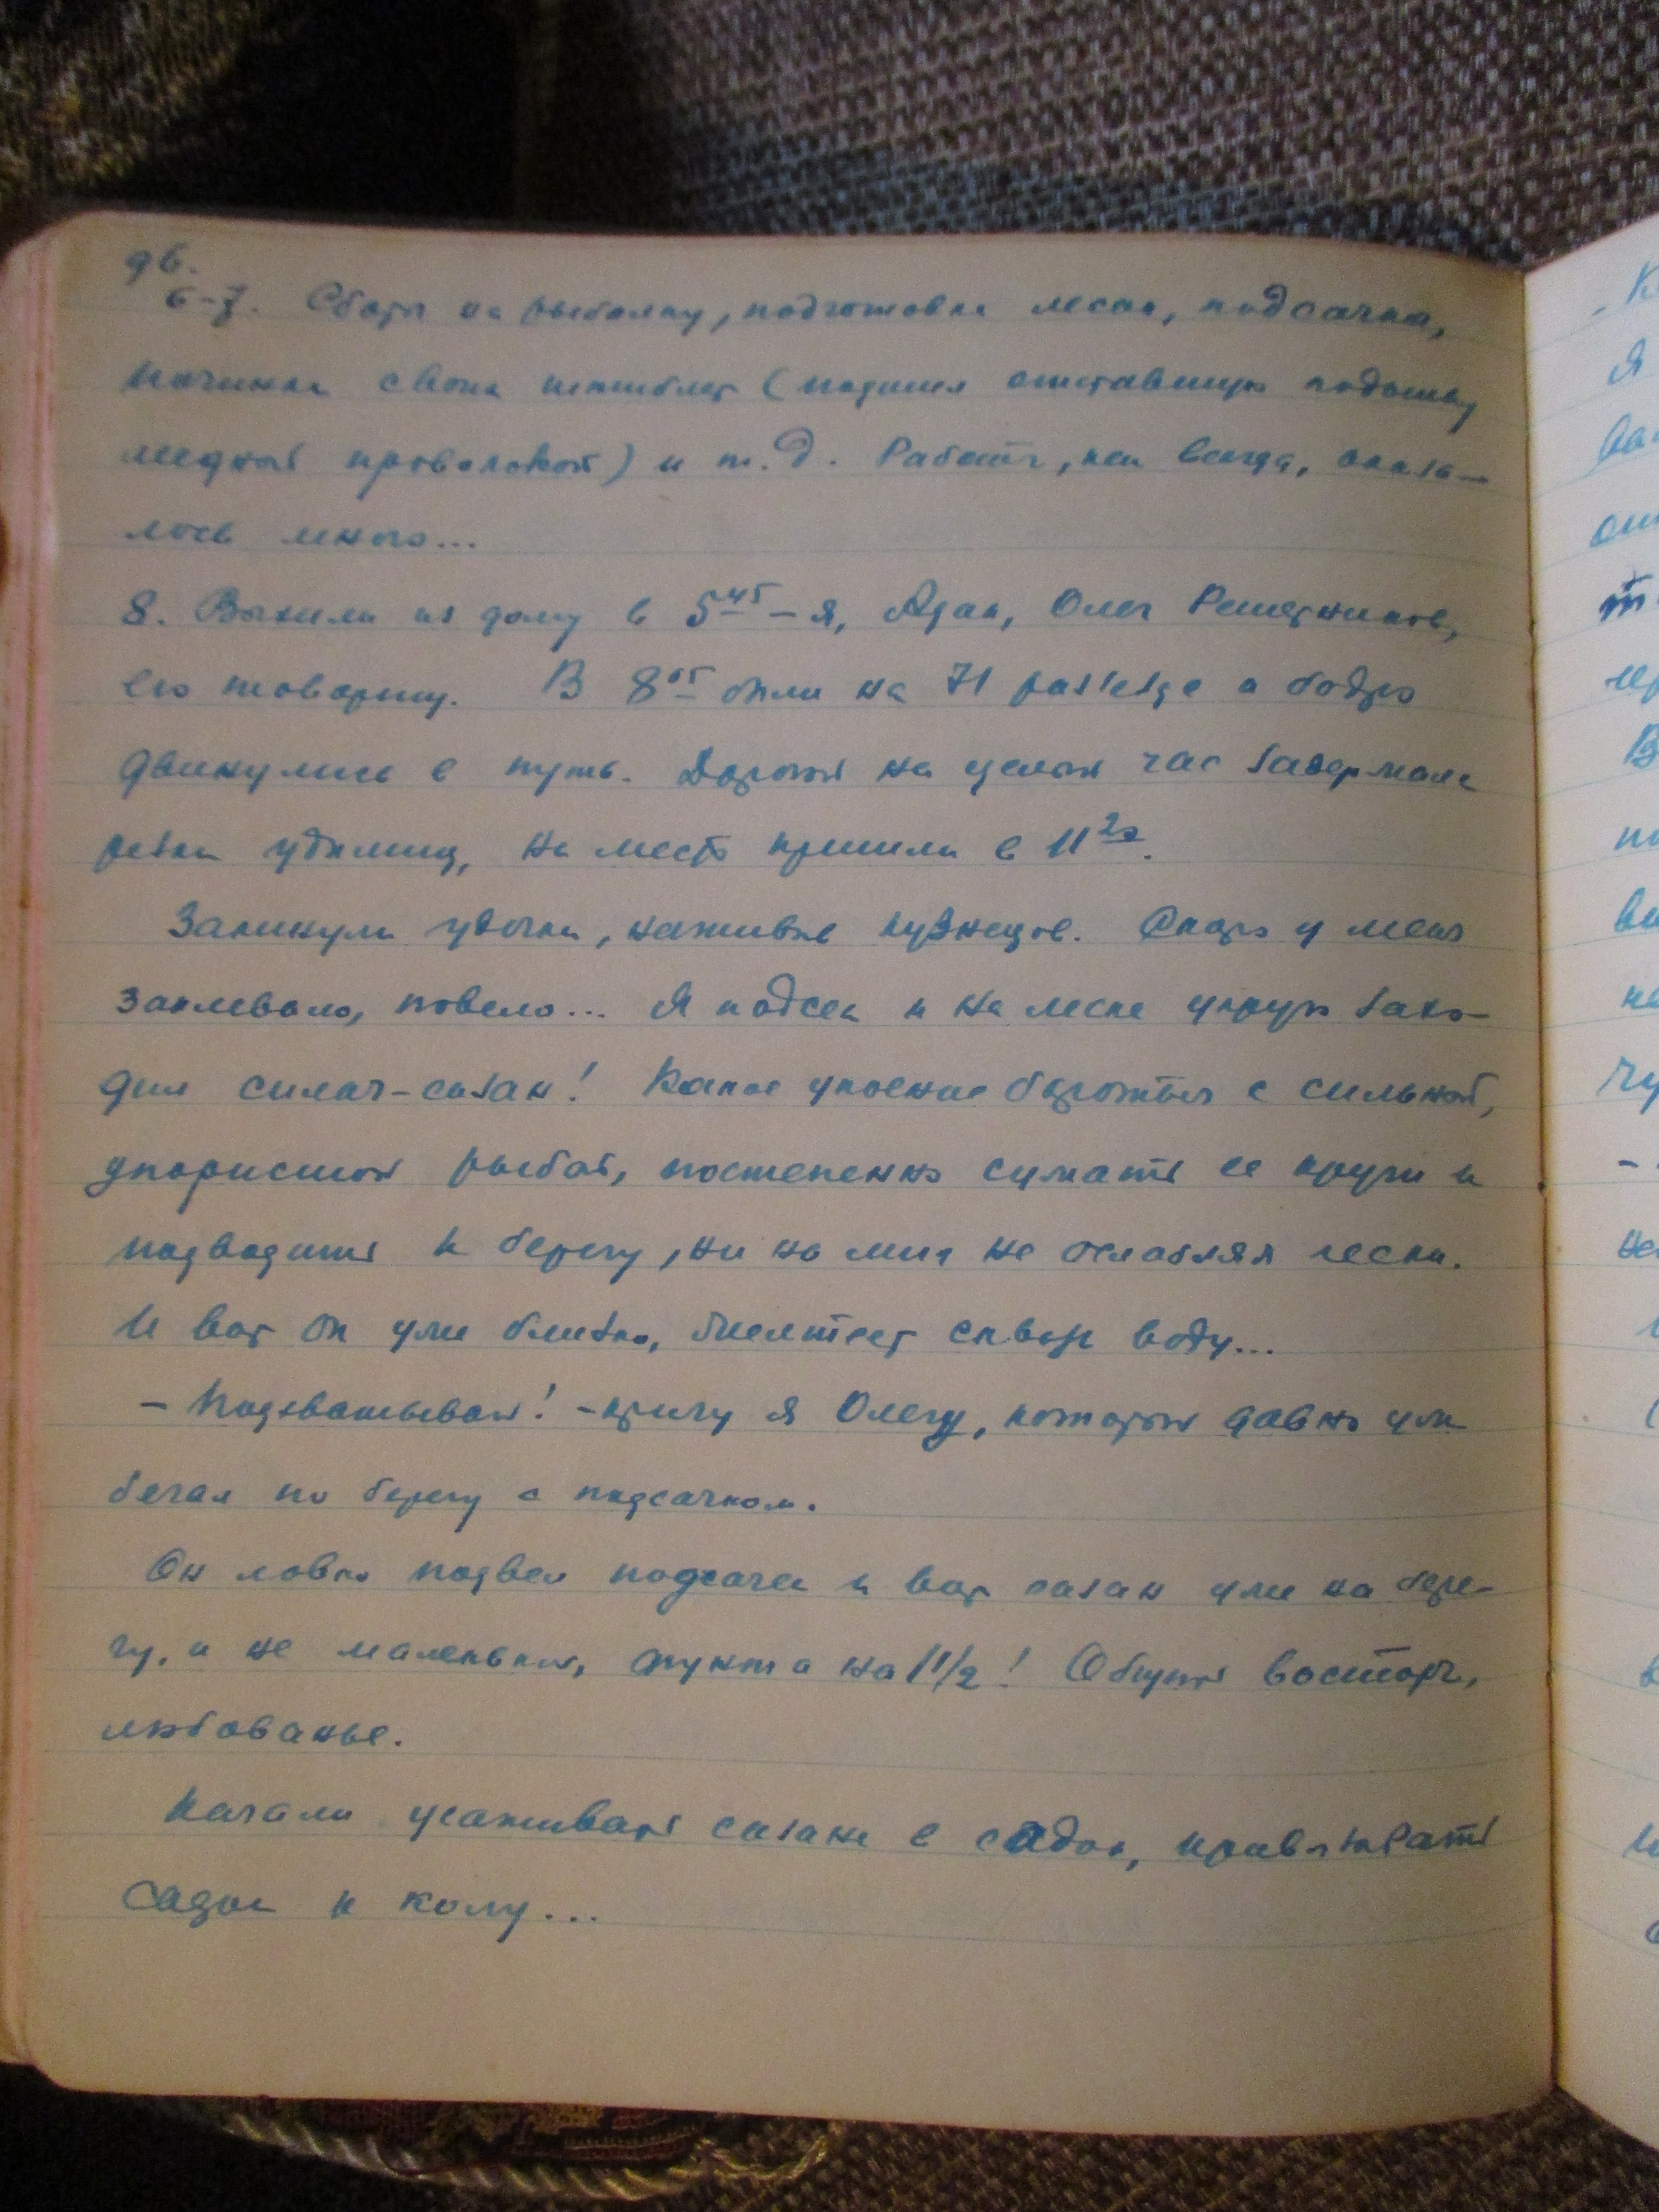 96.
6-7. Сборы на рыбалку, подготовка лесок, подсачка,
починка своих штиблет (подшил отставшую подошву
медной проволокой) и т.д. Работы, как всегда, оказа-
лось много...
8. Выехали из дому в 5 45 – я, Адик, Олег Решетников,
его товарищ. В 8 05 были на 71 разъезде и бодро
двинулись в путь. Дорогой на целый час задержала
резка удилищ, на место пришли в 11 20.
Закинули удочки, наживив кузнецов. Скоро у меня
заклевало, повело... Я подсек и на леске упруго захо-
дил силач-сазан! Какое упоение бороться с сильной,
упористой рыбой, постепенно сужать ее круги и
подводить к берегу, ни на миг не ослабляя лески.
И вот он уже близко, желтеет сквозь воду...
– Подхватывай! – кричу я Олегу, который давно уже
бегал по берегу с подсачком.
Он ловко подвел подсачек и вот сазан уже на бере-
гу, и не маленький, фунта на 1 1/2! Общий восторг,
любованье.
Начали усаживать сазана в садок, привязывать
садок к колу...
Я
В